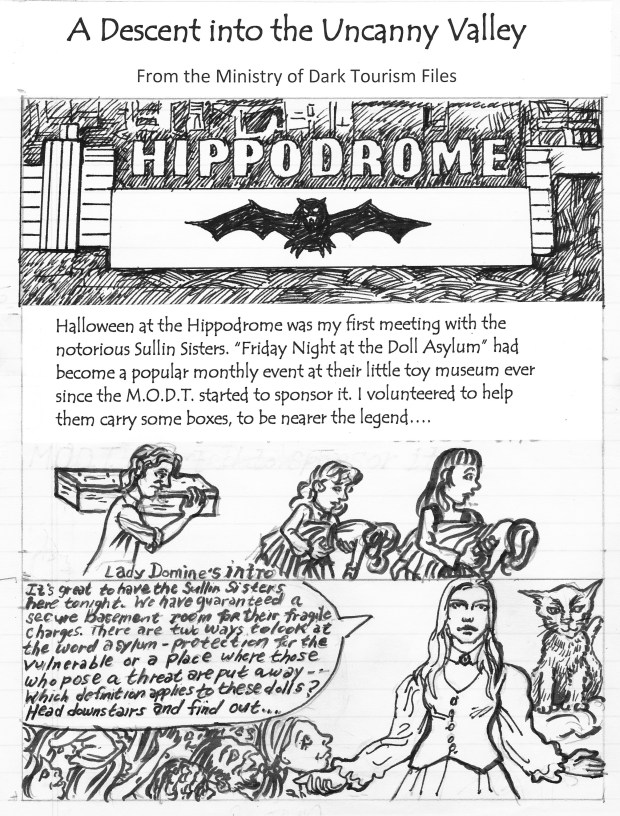 A Descent into the Uncanny Valley
From the Ministry of Dark Tourism Files
HIPPODROME
Halloween at the Hippodrome was my first meeting with the
notorious Sullin Sisters. “Friday Night at the Doll Asylum” had
become a popular monthly event at their little toy museum ever
since the M.O.D.T. started to sponsor it. I volunteered to help
them carry some boxes, to be nearer the legend….
Lady Domine's intro
It's great to have the Sullin Sisters
here tonight. We have guaranteed a
secure basement room for their fragile
charges. There are two ways to look at
the word asylum - protection for the
vulnerable or a place where those
who pose a threat are put away --
Which definition applies to these dolls?
Head downstairs and find out...